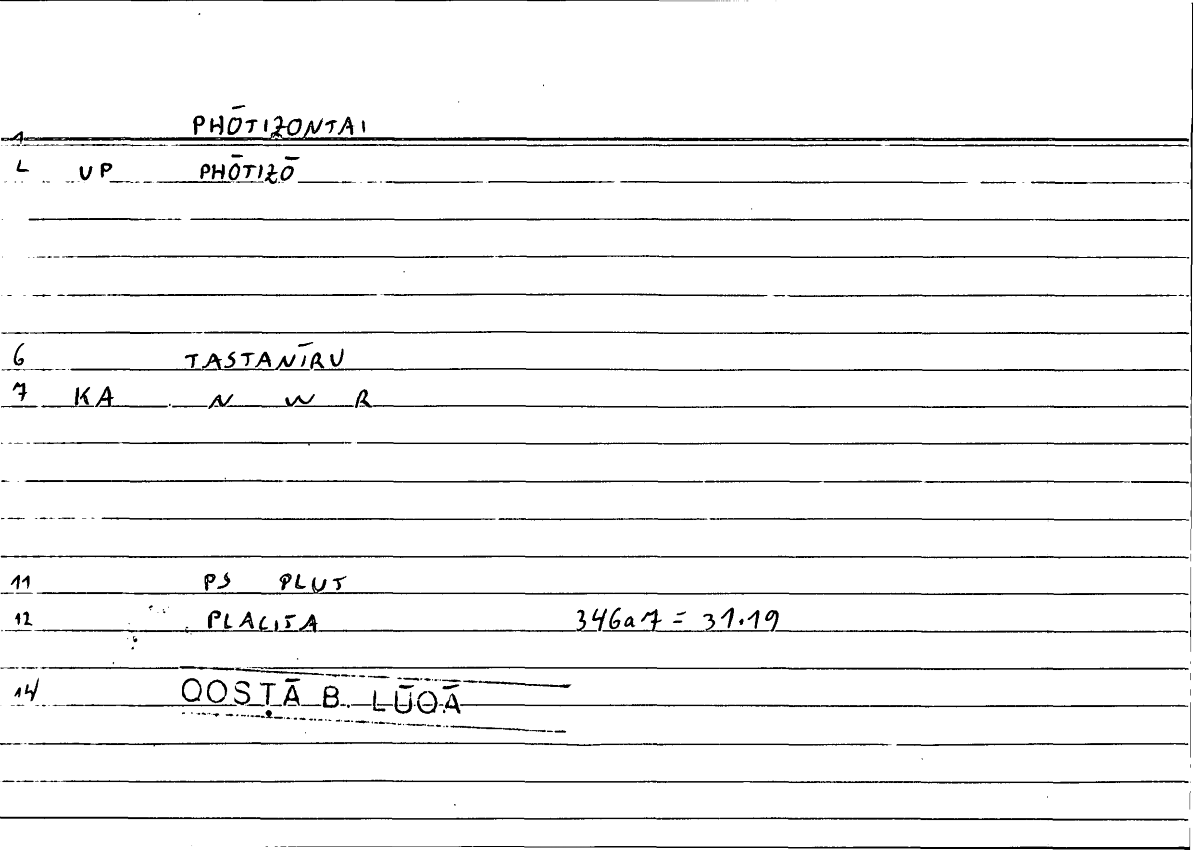 PHŌTIZONTAI
1
L UP PHŌTIZŌ
6 TASTANĪRU
7 KA N W R
11 PS PLUT
12 PLACITA 346a7 = 31.19
14 QOSṬĀ B. LŪQĀ